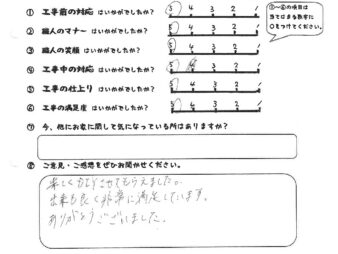 ① 工事前の対応 はいかがでしたか? 5 4 3 2 1
② 職人のマナー はいかがでしたか? 5 4 3 2 1
③ 職人の笑顔 はいかがでしたか? 5 4 3 2 1
④ 工事中の対応 はいかがでしたか? 5 4 3 2 1
⑤ 工事の仕上り はいかがでしたか? 5 4 3 2 1
⑥ 工事の満足度 はいかがでしたか? 5 4 3 2 1
①~⑥の項目は
当てはまる数字に
○をつけてください。
⑦ 今、他にお家に関して気になっている所はありますか?
⑧ ご意見・ご感想をぜひお聞かせください。
楽しく させてもらえました。
出来も良く非常に満足しています。
ありがとうございました。